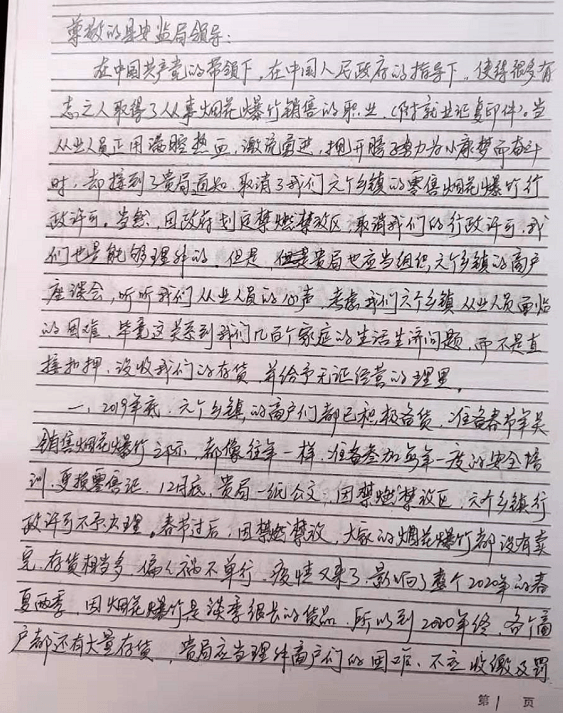 尊敬的县安监局领导：
在中国共产党的带领下，在中国人民政府的指导下，使得很多有
志之人取得了从事烟花爆竹销售的职业，（附就业证复印件）。当
从业人员正用满腔热血，激流勇进，撸开膀子努力为小康梦而奋斗
时，却接到了贵局通知，取消了我们六个乡镇的零售烟花爆竹行
政许可。当然，因政府划定禁燃禁放区，取消我们的行政许可，我
们也是能够理解的。但是，贵局也应当组织六个乡镇的商户
座谈会，听听我们从业人员的心声，考虑我们六个乡镇从业人员面临
的困难，毕竟这关系到我们几百个家庭的生活生济问题，而不是直
接扣押，没收我们的存货，并给予无证经营的理里。
一、2019年底，六个乡镇的商户们都已积极备货，准备春节年关
销售烟花爆竹之际，都像往年一样，准备参加每年一度的安全培
训，更换零售证，12月底，贵局一纸公文，因禁燃禁放区，六个乡镇行
政许可不予办理。春节过后，因禁燃禁放，大家的烟花爆竹都没有卖
完，存货相当多，偏偏祸不单行，疫情又来了，影响了整个2020年的春
夏两季，因烟花爆竹是淡季很长的货品，所以到2020年终，各个商
户都还有大量存货，贵局应当理解商户们的困难，不应收缴及罚
第1页